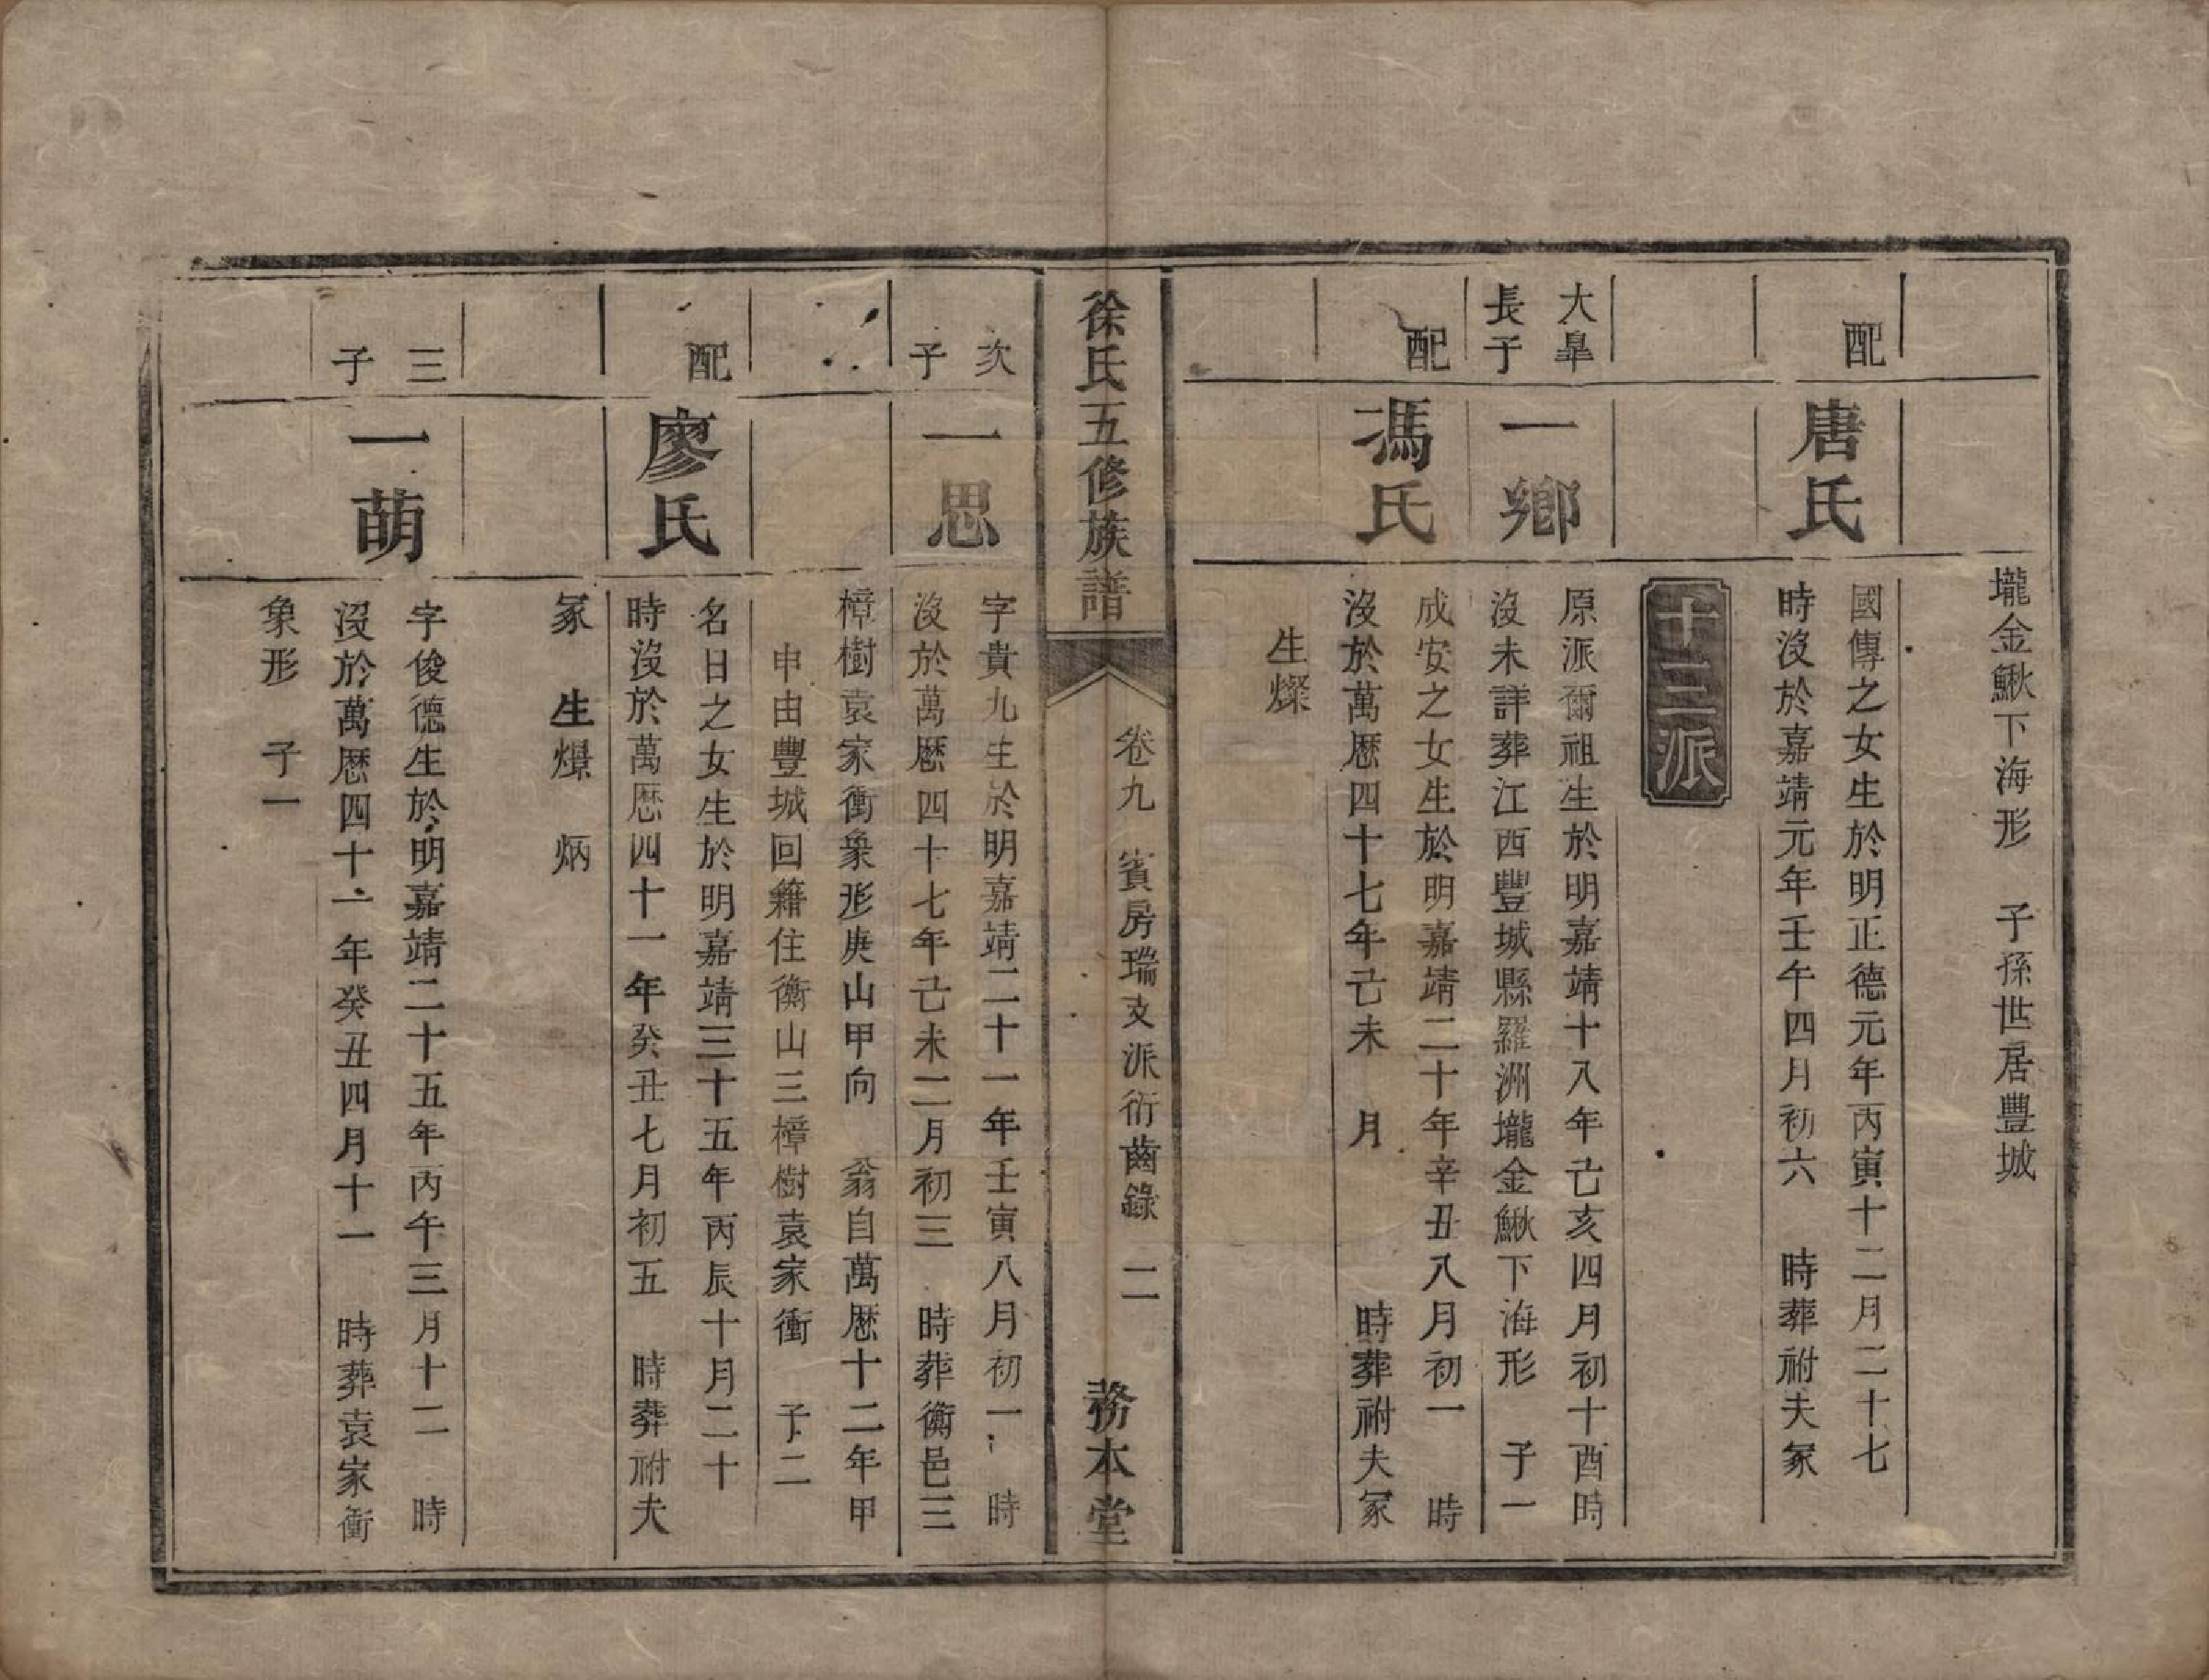 壠金鰍下海形　子孫世居豐城
配
唐氏
國傳之女生於明正德元年丙寅十二月二十七
時沒於嘉靖元年壬午四月初六　時葬祔夫冢
十三派
大皐
長子
一鄉
原派爾祖生於明嘉靖十八年己亥四月初十酉時
沒未詳葬江西豐城縣羅洲壠金鰍下海形　子一
配
馮氏
成安之女生於明嘉靖二十年辛丑八月初一　時
沒於萬厯四十七年己未　月　　時葬祔夫冢
生燦
徐氏五修族譜
卷九　賓房瑞支派衍齒錄　二
務本堂
次
子
一思
字貴九生於明嘉靖二十一年壬寅八月初一　時
沒於萬厯四十七年己未二月初三　時葬衡邑三
樟樹袁家衝象形庚山甲向　翁自萬厯十二年甲
申由豐城回籍住衡山三樟樹袁家衝　子二
配
廖氏
名日之女生於明嘉靖三十五年丙辰十月二十
時沒於萬厯四十一年癸丑七月初五　時葬祔夫
冢　生熉　炳
三
子
一萌
字俊德生於明嘉靖二十五年丙午三月十二　時
沒於萬厯四十一年癸丑四月十一　時葬袁家衝
象形　子一